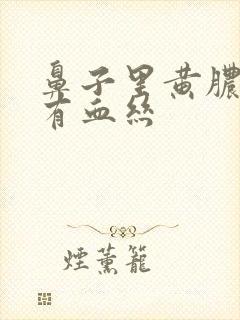 鼻子里黄脓
有血丝
煙薰籠